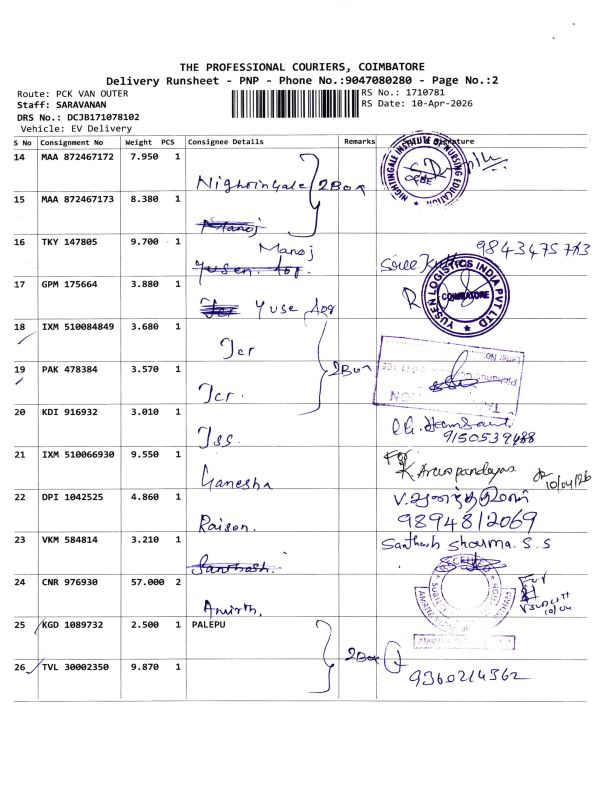 THE PROFESSIONAL COURIERS, COIMBATORE
Delivery Runsheet - PNP - Phone No.:9047080280 - Page No.:2
Route: PCK VAN OUTER
RS No.: 1710781
Staff: SARAVANAN
RS Date: 10-Apr-2026
DRS No.: DCJB171078102
Vehicle: EV Delivery
S No Consignment No Weight PCS Consignee Details Remarks Signature
14 MAA 872467172 7.950 1
Nightingale 2Box
NIGHTINGALE INSTITUTE OF NURSING EDUCATION
CBE
15 MAA 872467173 8.380 1
Manoj
16 TKY 147805 9.700 1
Manoj
9843475773
Yusen
17 GPM 175664 3.880 1
YUSEN LOGISTICS INDIA PVT LTD
COIMBATORE
Yuse
18 IXM 510084849 3.680 1
Tcr
19 PAK 478384 3.570 1
2Box
Tcr.
20 KDI 916932 3.010 1
Tss.
9150539488
21 IXM 510066930 9.550 1
For
K Arul pandayan
10/04/26
Ganesha
22 DPI 1042525 4.860 1
Raison.
9894812069
23 VKM 584814 3.210 1
Santhosh Sharma. S.S
Santhosh.
24 CNR 976930 57.000 2
RECEIVED
For
10/04
Amirth.
25 KGD 1089732 2.500 1 PALEPU
2Box
26 TVL 30002350 9.870 1
9360214362